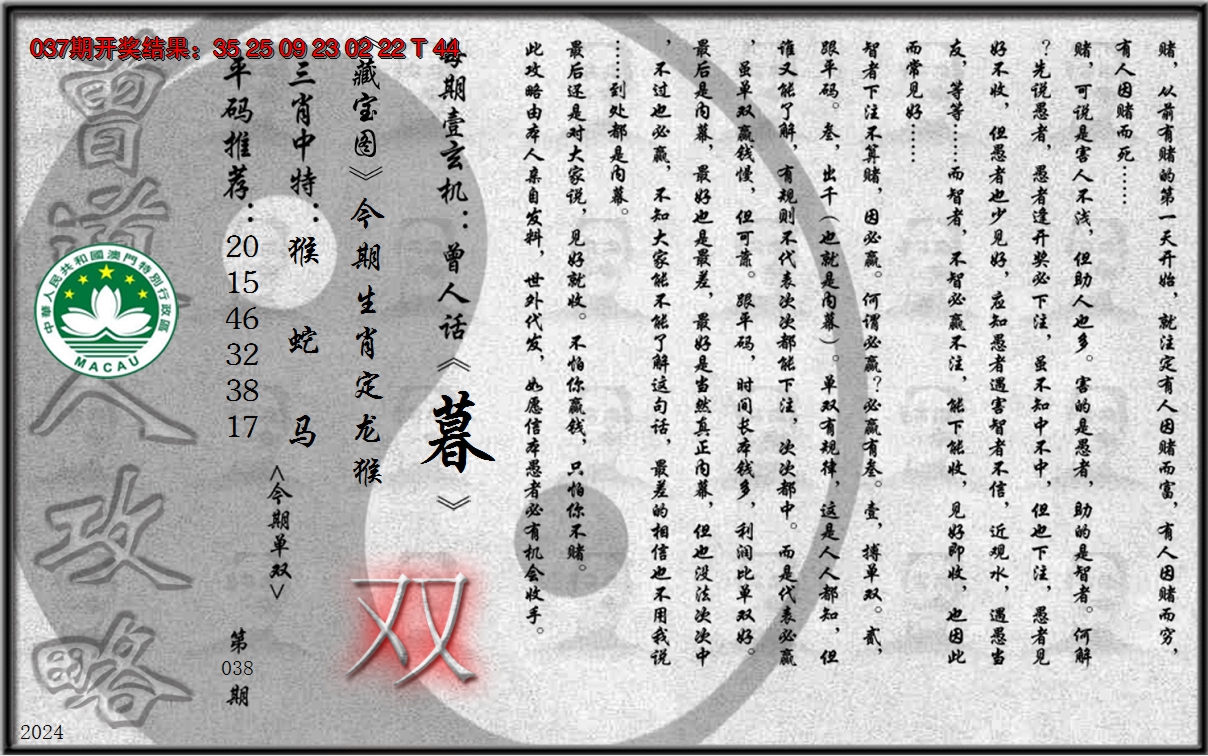 037期开奖结果：35 25 09 23 02 22 T 44
赌，从前有赌的第一天开始，就注定有人因赌而富，有人因赌而穷，
有人因赌而死……
赌，可说是害人不浅，但助人也多。害的是愚者，助的是智者。何解
？先说愚者，愚者逢开奖必下注，虽不知中不中，但也下注，愚者见
好不收，但愚者也少见好，应知愚者遇害智者不信，近观水，遇愚当
友，等等……而智者，不智必赢不注，能下能收，见好即收，也因此
而常见好……
智者下注不算赌，因必赢。何谓必赢？必赢有叁。壹，搏单双。贰，
跟平码。叁，出千（也就是内幕）。单双有规律，这是人人都知，但
谁又能了解，有规则不代表次次都能下注，次次都中。而是代表必赢
，虽单双赢钱慢，但可靠。跟平码，时间长本钱多，利润比单双好。
最后是内幕，最好也是最差，最好是当然真正内幕，但也没法次次中
，不过也必赢，不知大家能不能了解这句话，最差的相信也不用我说
……到处都是内幕。
最后还是对大家说，见好就收。不怕你赢钱，只怕你不赌。
此攻略由本人亲自发料，世外代发，如愿信本愚者必有机会收手。
每期壹玄机：曾人话《暮》
《藏宝图》今期生肖定龙猴
双
三肖中特：猴 蛇 马
<今期单双>
平码推荐：20 15 46 32 38 17
第038期
曾道人攻略
中華人民共和國澳門特別行政區
MACAU
2024